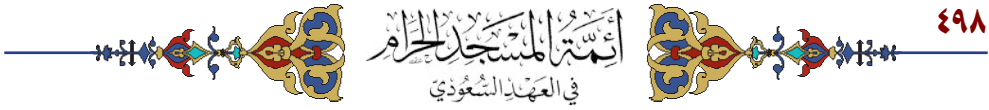 ٤٩٨
أَئِمَّةُ المَسْجِدِ الحَرَامِ
في العَهْدِ السُّعُودِيّ